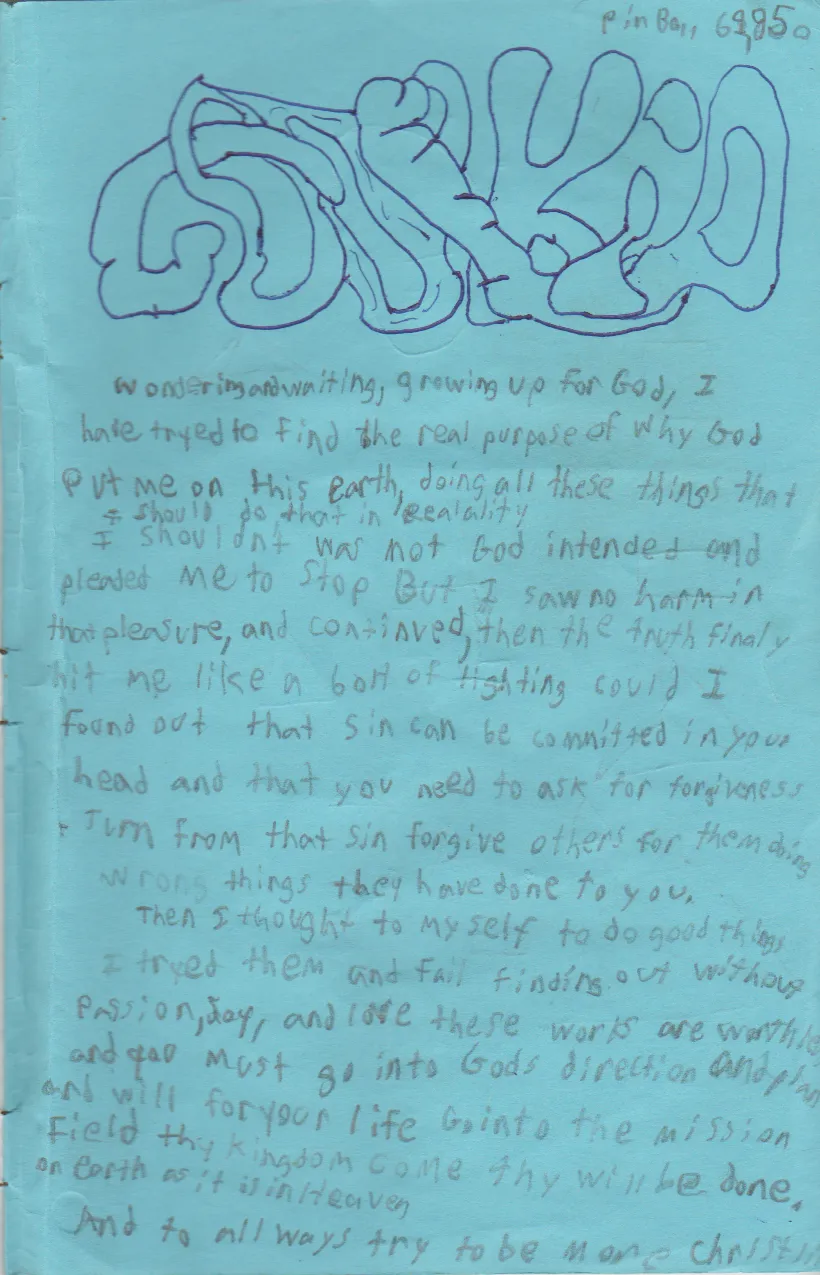 Pin Ball 69,950
wondering and waiting, growing up for God, I
have tryed to find the real purpose of why God
put me on this earth, doing all these things that
I should do, that in realality
I shouldn't was not God intended and
pleaded me to stop But I saw no harm in
that pleasure, and continued, then the truth finaly
hit me like a bolt of lighting could I
found out that sin can be committed in your
head and that you need to ask for forgiveness
+ Turn from that sin forgive others for them doing
wrong things they have done to you.
Then I thought to my self to do good things
I tryed them and fail finding out without
Passion, Joy, and love these works are worthle
and you must go into Gods direction and plan
and will for your life Go into the mission
field thy kingdom come thy will be done.
on Earth as it is in Heaven
And to all ways try to be more Christ